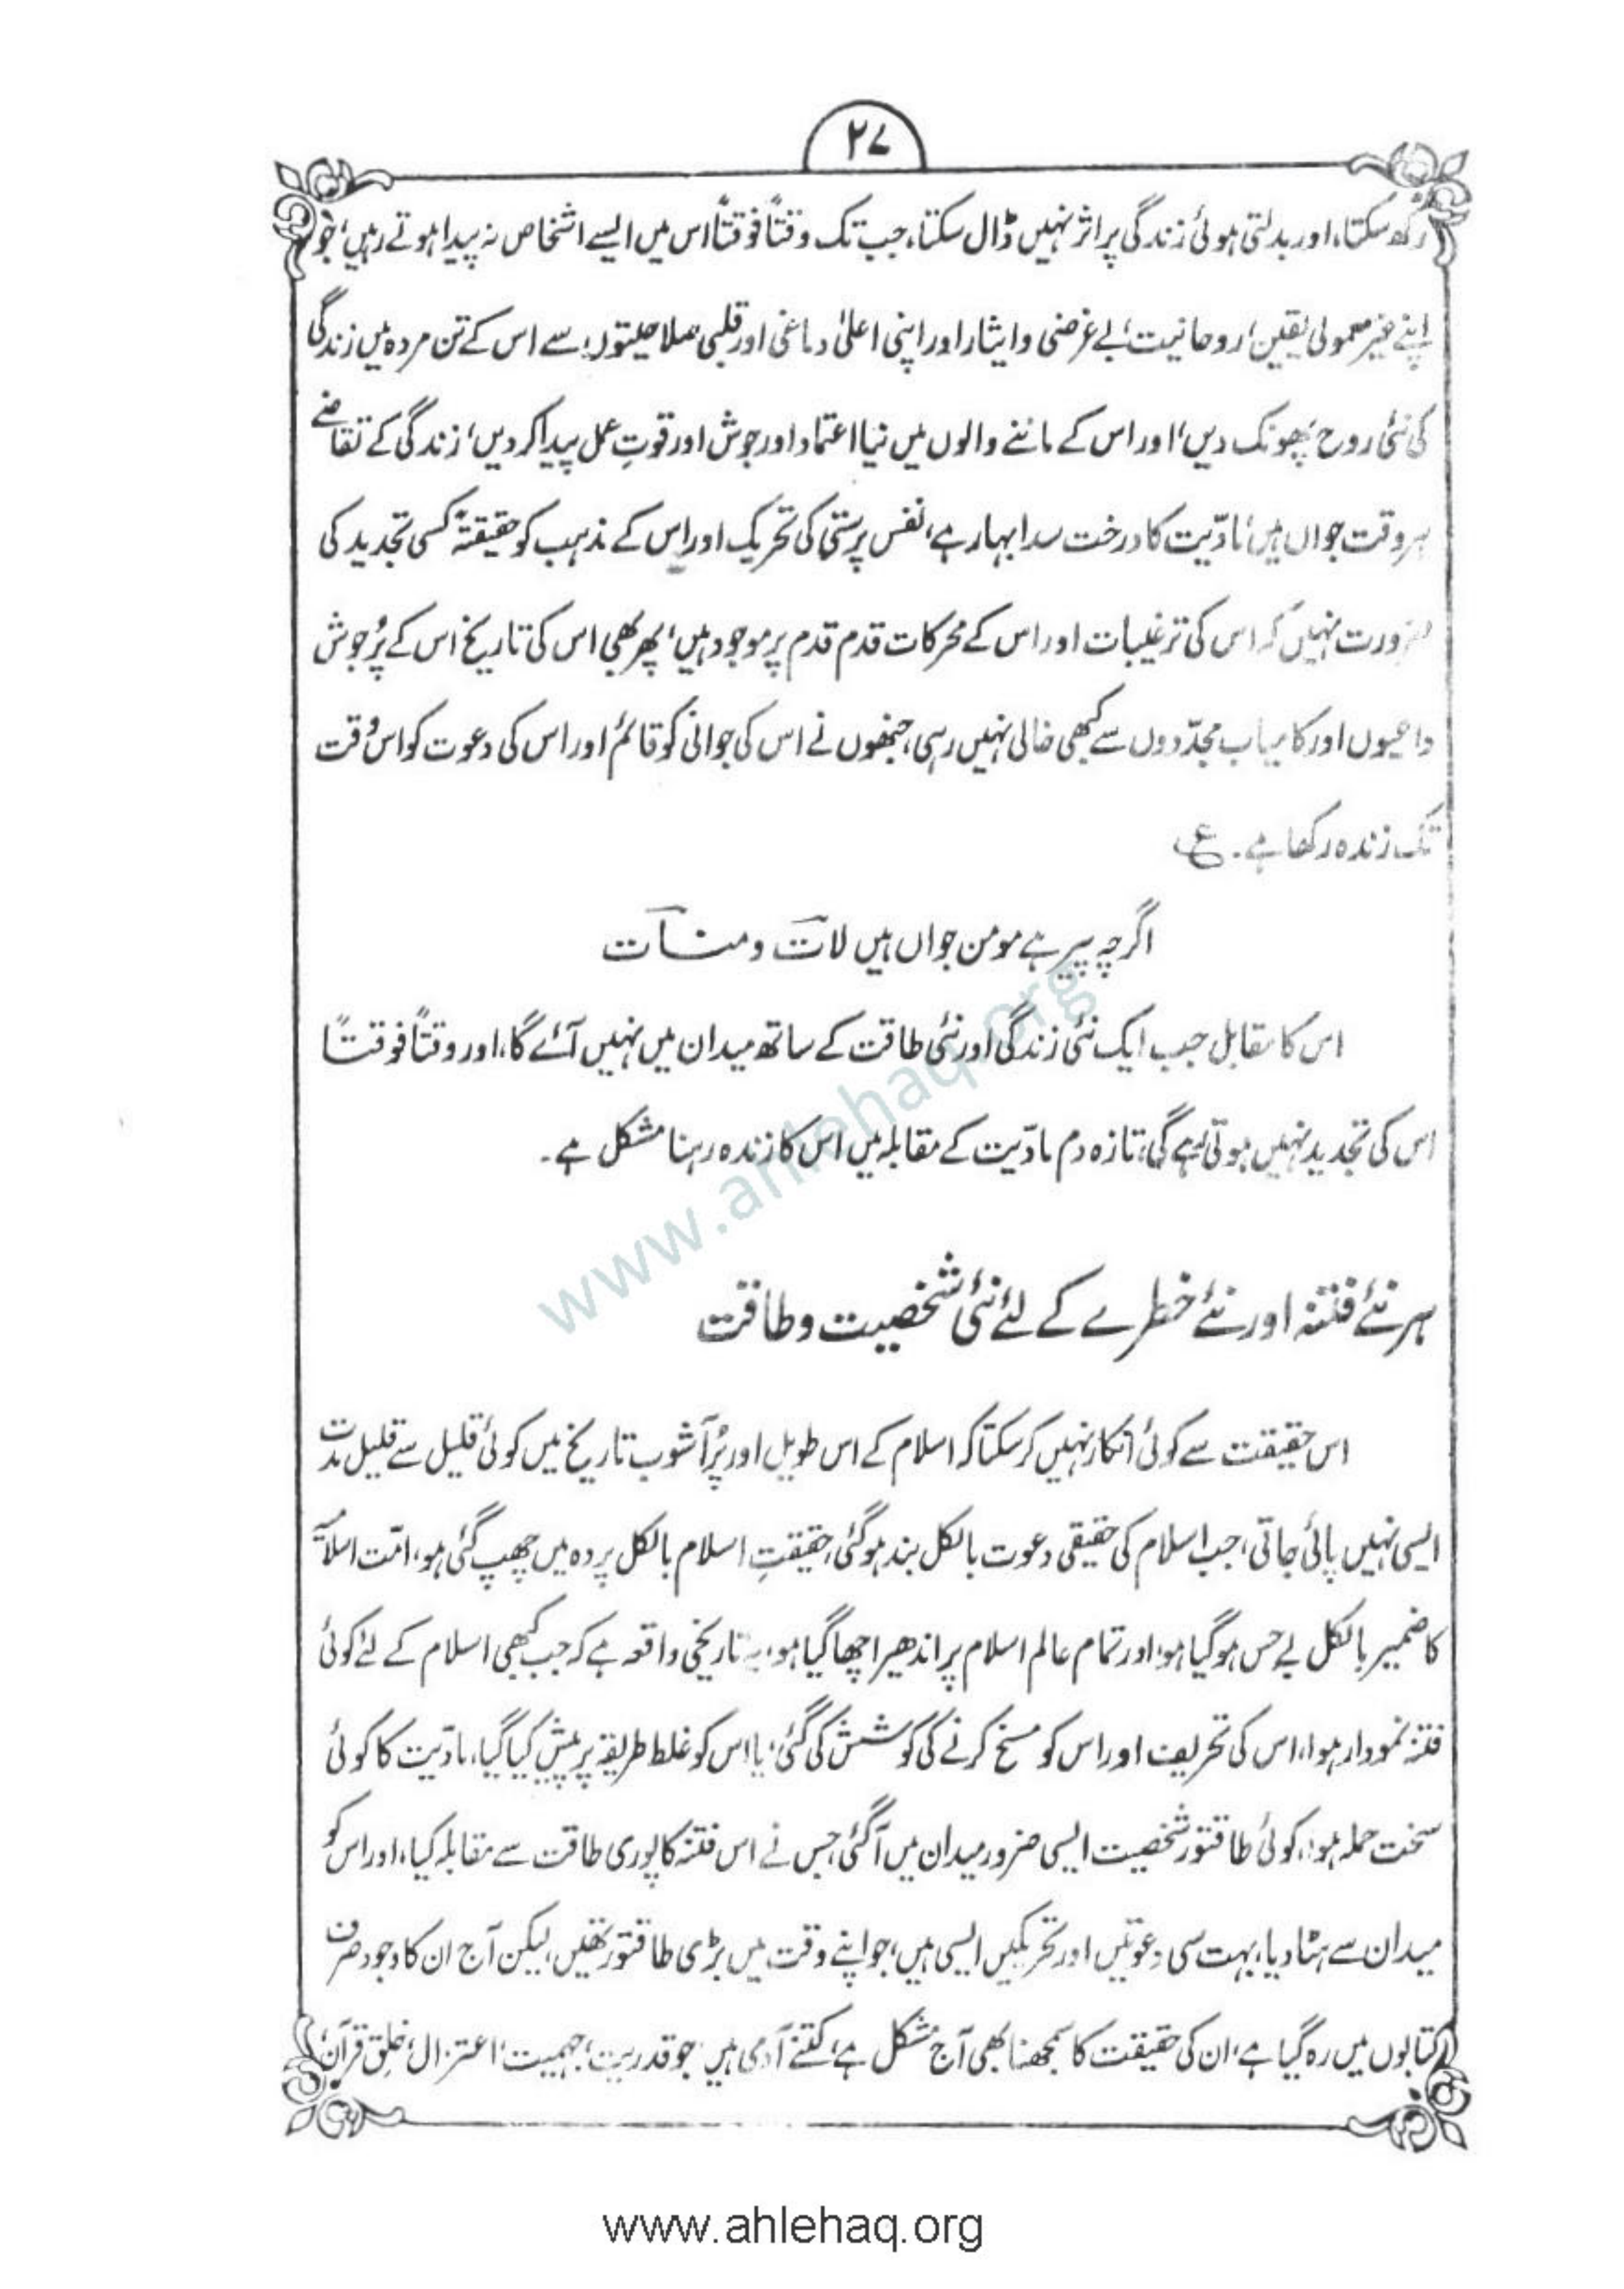 ۲۷
رکھ سکتا، اور بدلتی ہوئی زندگی پر اثر نہیں ڈال سکتا، جب تک وقتاً فوقتاً اس میں ایسے اشخاص نہ پیدا ہوتے رہیں، جو
اپنے غیر معمولی یقین، روحانیت، بے غرضی و ایثار اور اپنی اعلیٰ دماغی اور قلبی صلاحیتوں سے اس کے تن مردہ میں زندگی
کی نئی روح پھونک دیں، اور اس کے ماننے والوں میں نیا اعتماد اور جوش اور قوتِ عمل پیدا کر دیں، زندگی کے تقاضے
ہر وقت جواں ہیں، مادّیت کا درخت سدا بہار ہے، نفس پرستی کی تحریک اور اس کے مذہب کو حقیقۃً کسی تجدید کی
ضرورت نہیں کہ اس کی ترغیبات اور اس کے محرکات قدم قدم پر موجود ہیں، پھر بھی اس کی تاریخ اس کے پُرجوش
داعیوں اور کامیاب مجدّدوں سے کبھی خالی نہیں رہی، جنھوں نے اس کی جوانی کو قائم اور اس کی دعوت کو اس وقت
تک زندہ رکھا ہے۔ ع
اگرچہ پیر ہے مومن جواں ہیں لات و منات
اس کا مقابل جب ایک نئی زندگی اور نئی طاقت کے ساتھ میدان میں نہیں آئے گا، اور وقتاً فوقتاً
اس کی تجدید نہیں ہوتی رہے گی، تازہ دم مادّیت کے مقابلہ میں اس کا زندہ رہنا مشکل ہے۔
ہر نئے فتنہ اور نئے خطرے کے لئے نئی شخصیت و طاقت
اس حقیقت سے کوئی انکار نہیں کر سکتا کہ اسلام کے اس طویل اور پُرآشوب تاریخ میں کوئی قلیل سے قلیل مدت
ایسی نہیں پائی جاتی، جب اسلام کی حقیقی دعوت بالکل بند ہو گئی، حقیقتِ اسلام بالکل پردہ میں چھپ گئی ہو، امّت اسلامیہ
کا ضمیر بالکل بے حس ہو گیا ہو، اور تمام عالم اسلام پر اندھیرا چھا گیا ہو، یہ تاریخی واقعہ ہے کہ جب کبھی اسلام کے لئے کوئی
فتنہ نمودار ہوا، اس کی تحریف اور اس کو مسخ کرنے کی کوشش کی گئی، یا اس کو غلط طریقہ پر پیش کیا گیا، مادّیت کا کوئی
سخت حملہ ہوا، کوئی طاقتور شخصیت ایسی ضرور میدان میں آ گئی جس نے اس فتنہ کا پوری طاقت سے مقابلہ کیا، اور اس کو
میدان سے ہٹا دیا، بہت سی دعوتیں اور تحریکیں ایسی ہیں، جو اپنے وقت میں بڑی طاقتور تھیں، لیکن آج ان کا وجود صرف
کتابوں میں رہ گیا ہے، ان کی حقیقت کا سمجھنا بھی آج مشکل ہے، کتنے آدمی ہیں جو قدریت، جہمیت، اعتزال، خلق قرآن،
www.ahlehaq.org
www.ahlehaq.org